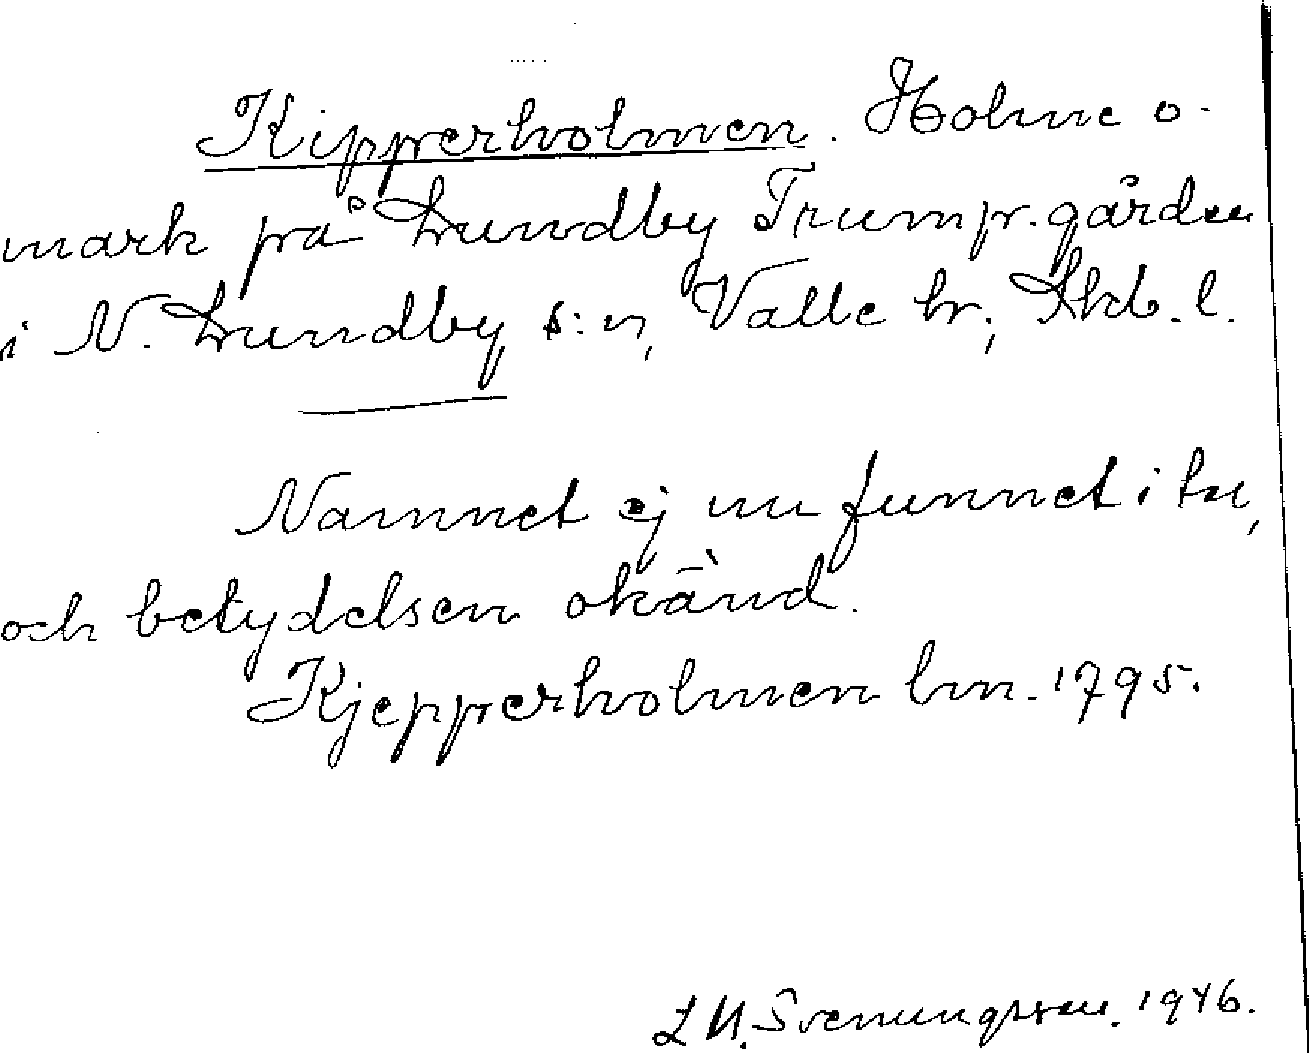 Kipperholmen. Holme o-
mark på Lundby Trump.gården
i N. Lundby s:n, Valle hr, Skb. l.
Namnet ej nu funnet i bu,
och betydelsen okänd.
Kjepperholmen lm. 1795.
L M. Svenungsson. 1946.